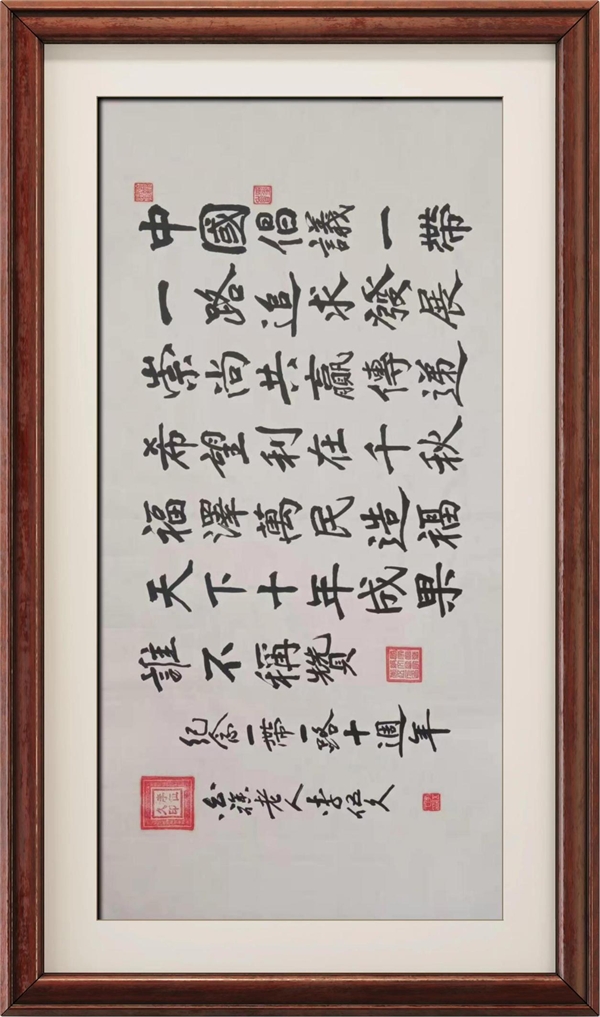 中國倡議一帶
一路追求發展
崇尚共贏傳递
希望利在千秋
福澤萬民造福
天下十年成果
誰不稱贊
紀念一帶一路十週年
老人李伍久